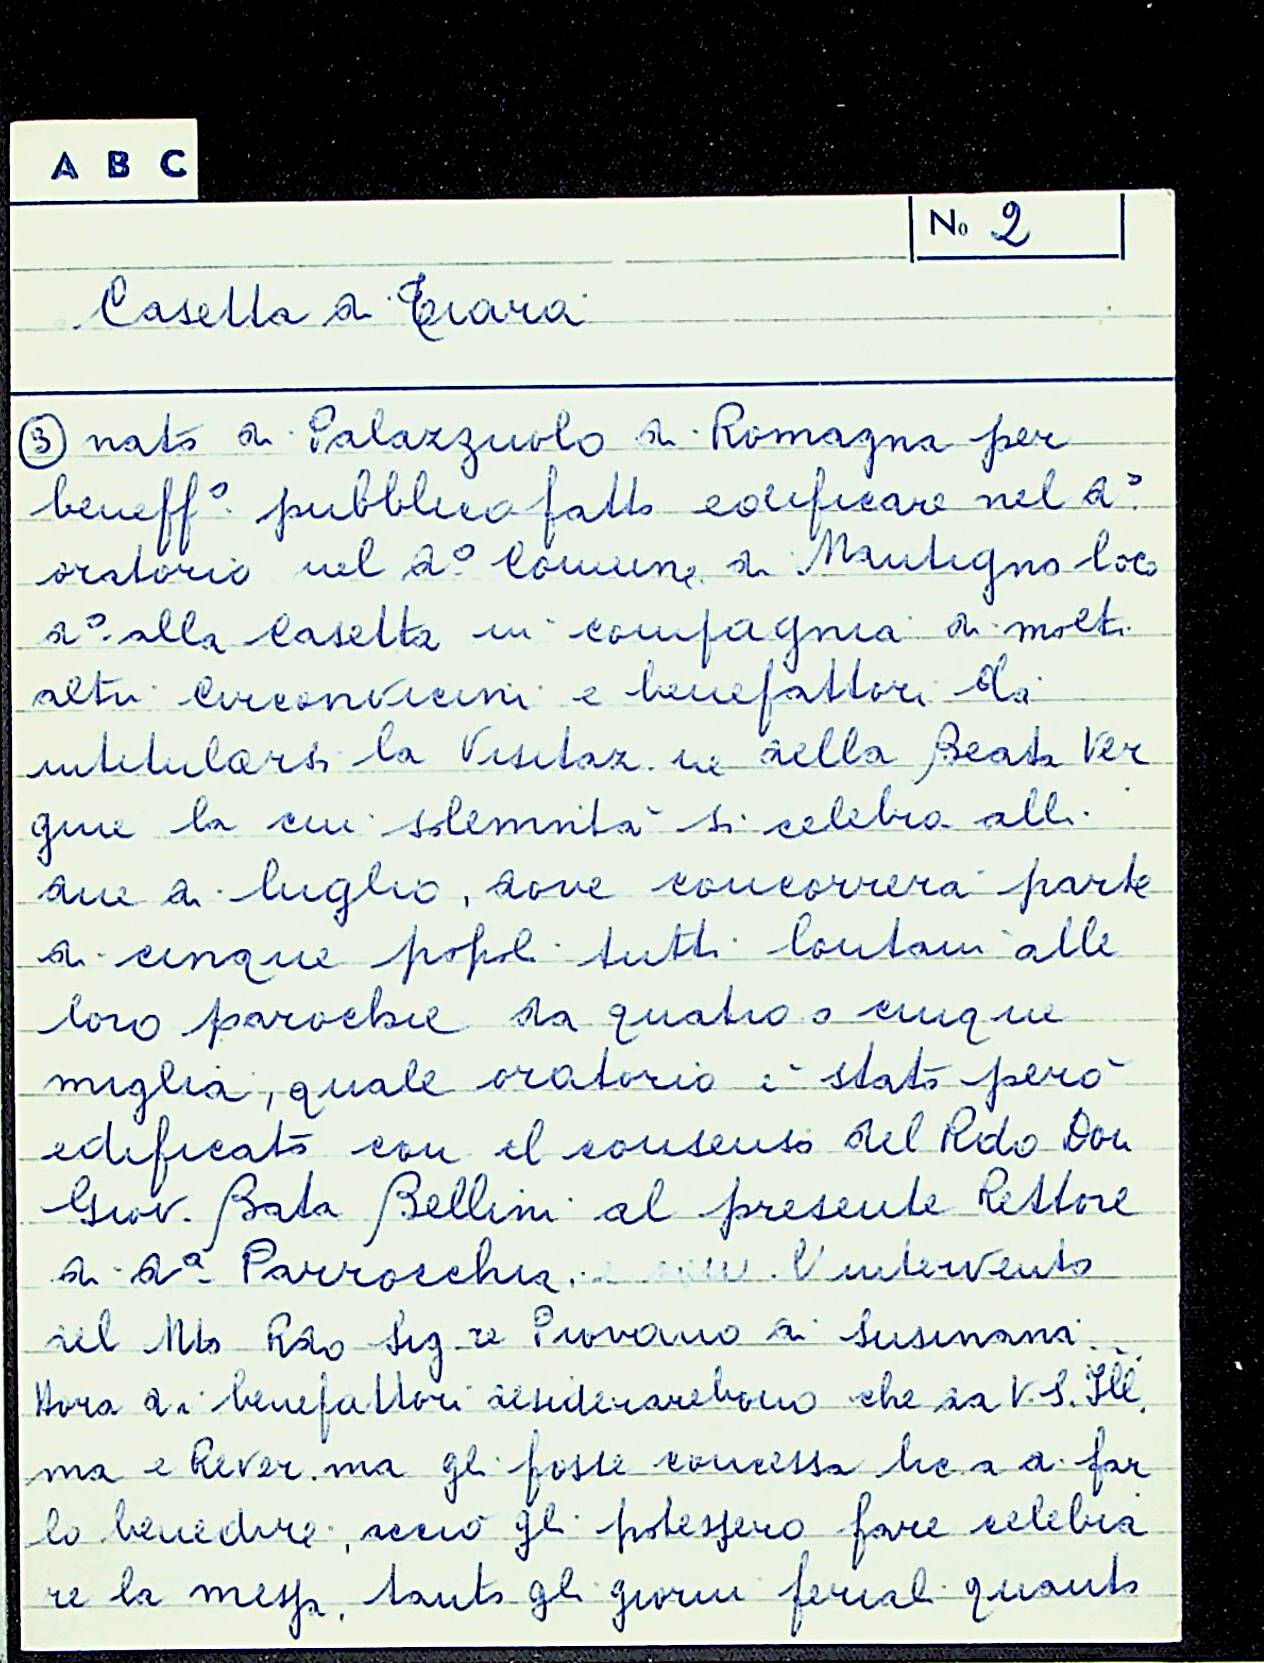 A B C
No 2
Casetta di Tiara
③ nato di Palazzuolo di Romagna per
beneff.o pubblico fatto edificare nel d.o
oratorio nel d.o Comune di Mantigno loco
d.o alla Casetta in compagnia di molti
altri circonvicini e benefattori da
intitularsi la Visitaz.ne della Beata Ver
gine la cui solemnità si celebra alli
due di luglio, dove concorrerà parte
di cinque popoli tutti lontani alle
loro parochie da quatro o cinque
miglia, quale oratorio è stato però
edificato con il consenso del Rdo Don
Giov. Bata Bellini al presente Rettore
di d.a Parrocchia, e con l'intervento
del Mto Rdo Sig.re Piovano di Susinana...
Hora d.i benefattori desiderarebono che da V.S. Ill.
ma e Rever.ma gli fosse concessa lic.a di far
lo benedire, acciò gli potessero fare celebra
re la messa, tanto gli giorni feriali quanto